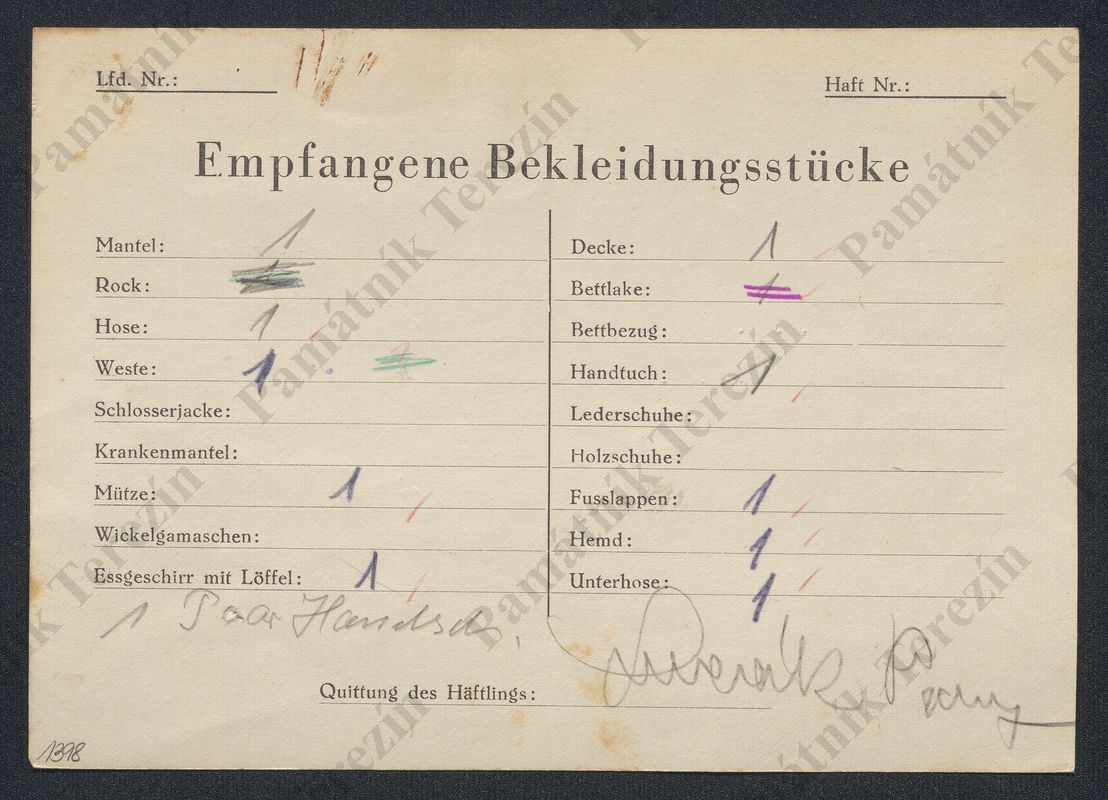 Lfd. Nr.:
Haft Nr.:
Empfangene Bekleidungsstücke
Mantel: 1
Rock: 1
Hose: 1
Weste: 1
Schlosserjacke:
Krankenmantel:
Mütze: 1
Wickelgamaschen:
Essgeschirr mit Löffel: 1
1 Paar Handsch.
Decke: 1
Bettlake: 1
Bettbezug:
Handtuch: 1
Lederschuhe:
Holzschuhe:
Fusslappen: 1
Hemd: 1
Unterhose: 1
Quittung des Häftlings:
1398
Památník Terezín